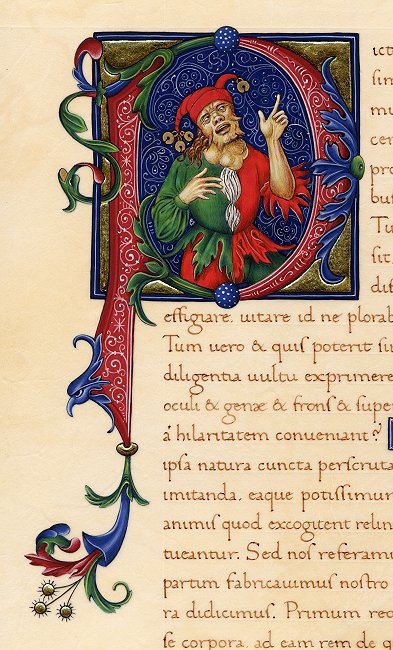 P
ict
ſim
mu
cer
pro
but
Tu
ſit,
diſ
effigiare, uitare id ne plorab
Tum uero & quiſ poterit ſu
diligentia uultu exprimere
oculi & genæ & fronſ & ſupe
á hilaritatem conueniant?
ipſa natura cuncta perſcruta
imitanda, eaque potiſſimum
animiſ quod excogitent relin
tueantur. Sed noſ referamu
partim fabricauimuſ noſtro
ra didicimuſ. Primum req
ſe corpora, ad eam rem de q